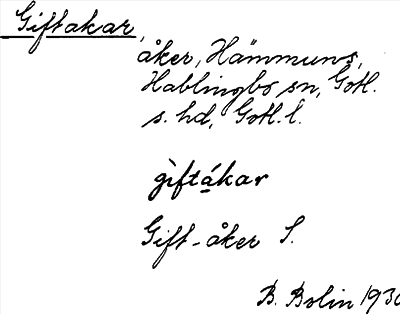 Giftakar,
åker, Hämmuns,
Hablingbo sn, Gotl.
s. hd, Gotl. l.
gìftákar
Gift-åker S.
B. Bolin 1930